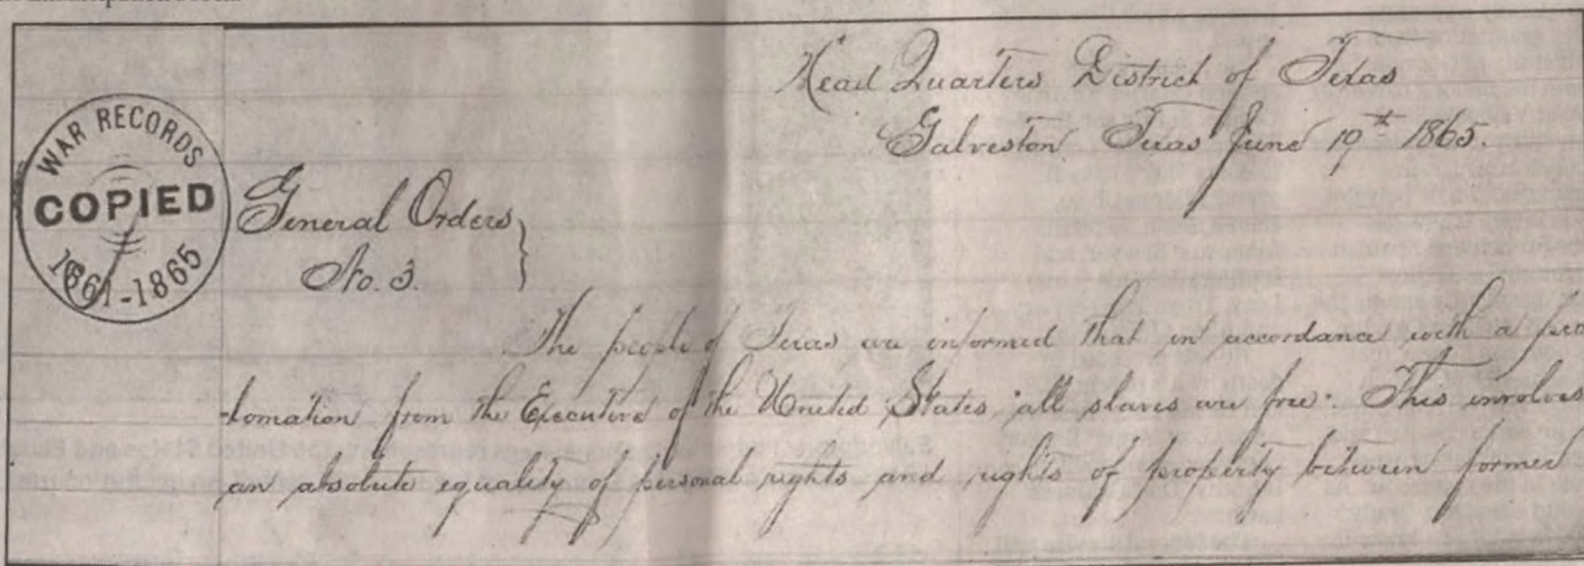 Head Quarters District of Texas
Galveston Texas June 19th 1865.
WAR RECORDS
COPIED
1861-1865
General Orders
No. 3.
The people of Texas are informed that in accordance with a pro
clamation from the Executive of the United States, "all slaves are free". This involves
an absolute equality of personal rights and rights of property between former